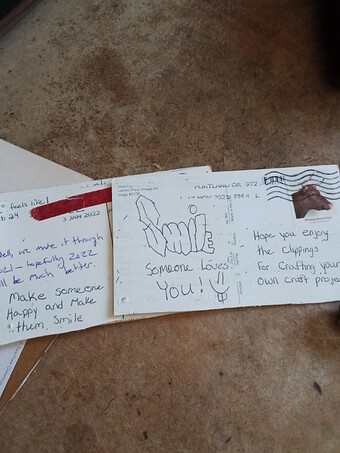 feels like!
3 JAN 2022
we made it through
hopefully 2022
be much better.
Make someone
Happy and Make
them, Smile
PORTLAND OR 972
Smile
Someone Loves
You!
Hope you enjoy
the Clippings
for Crafting your
own craft projec